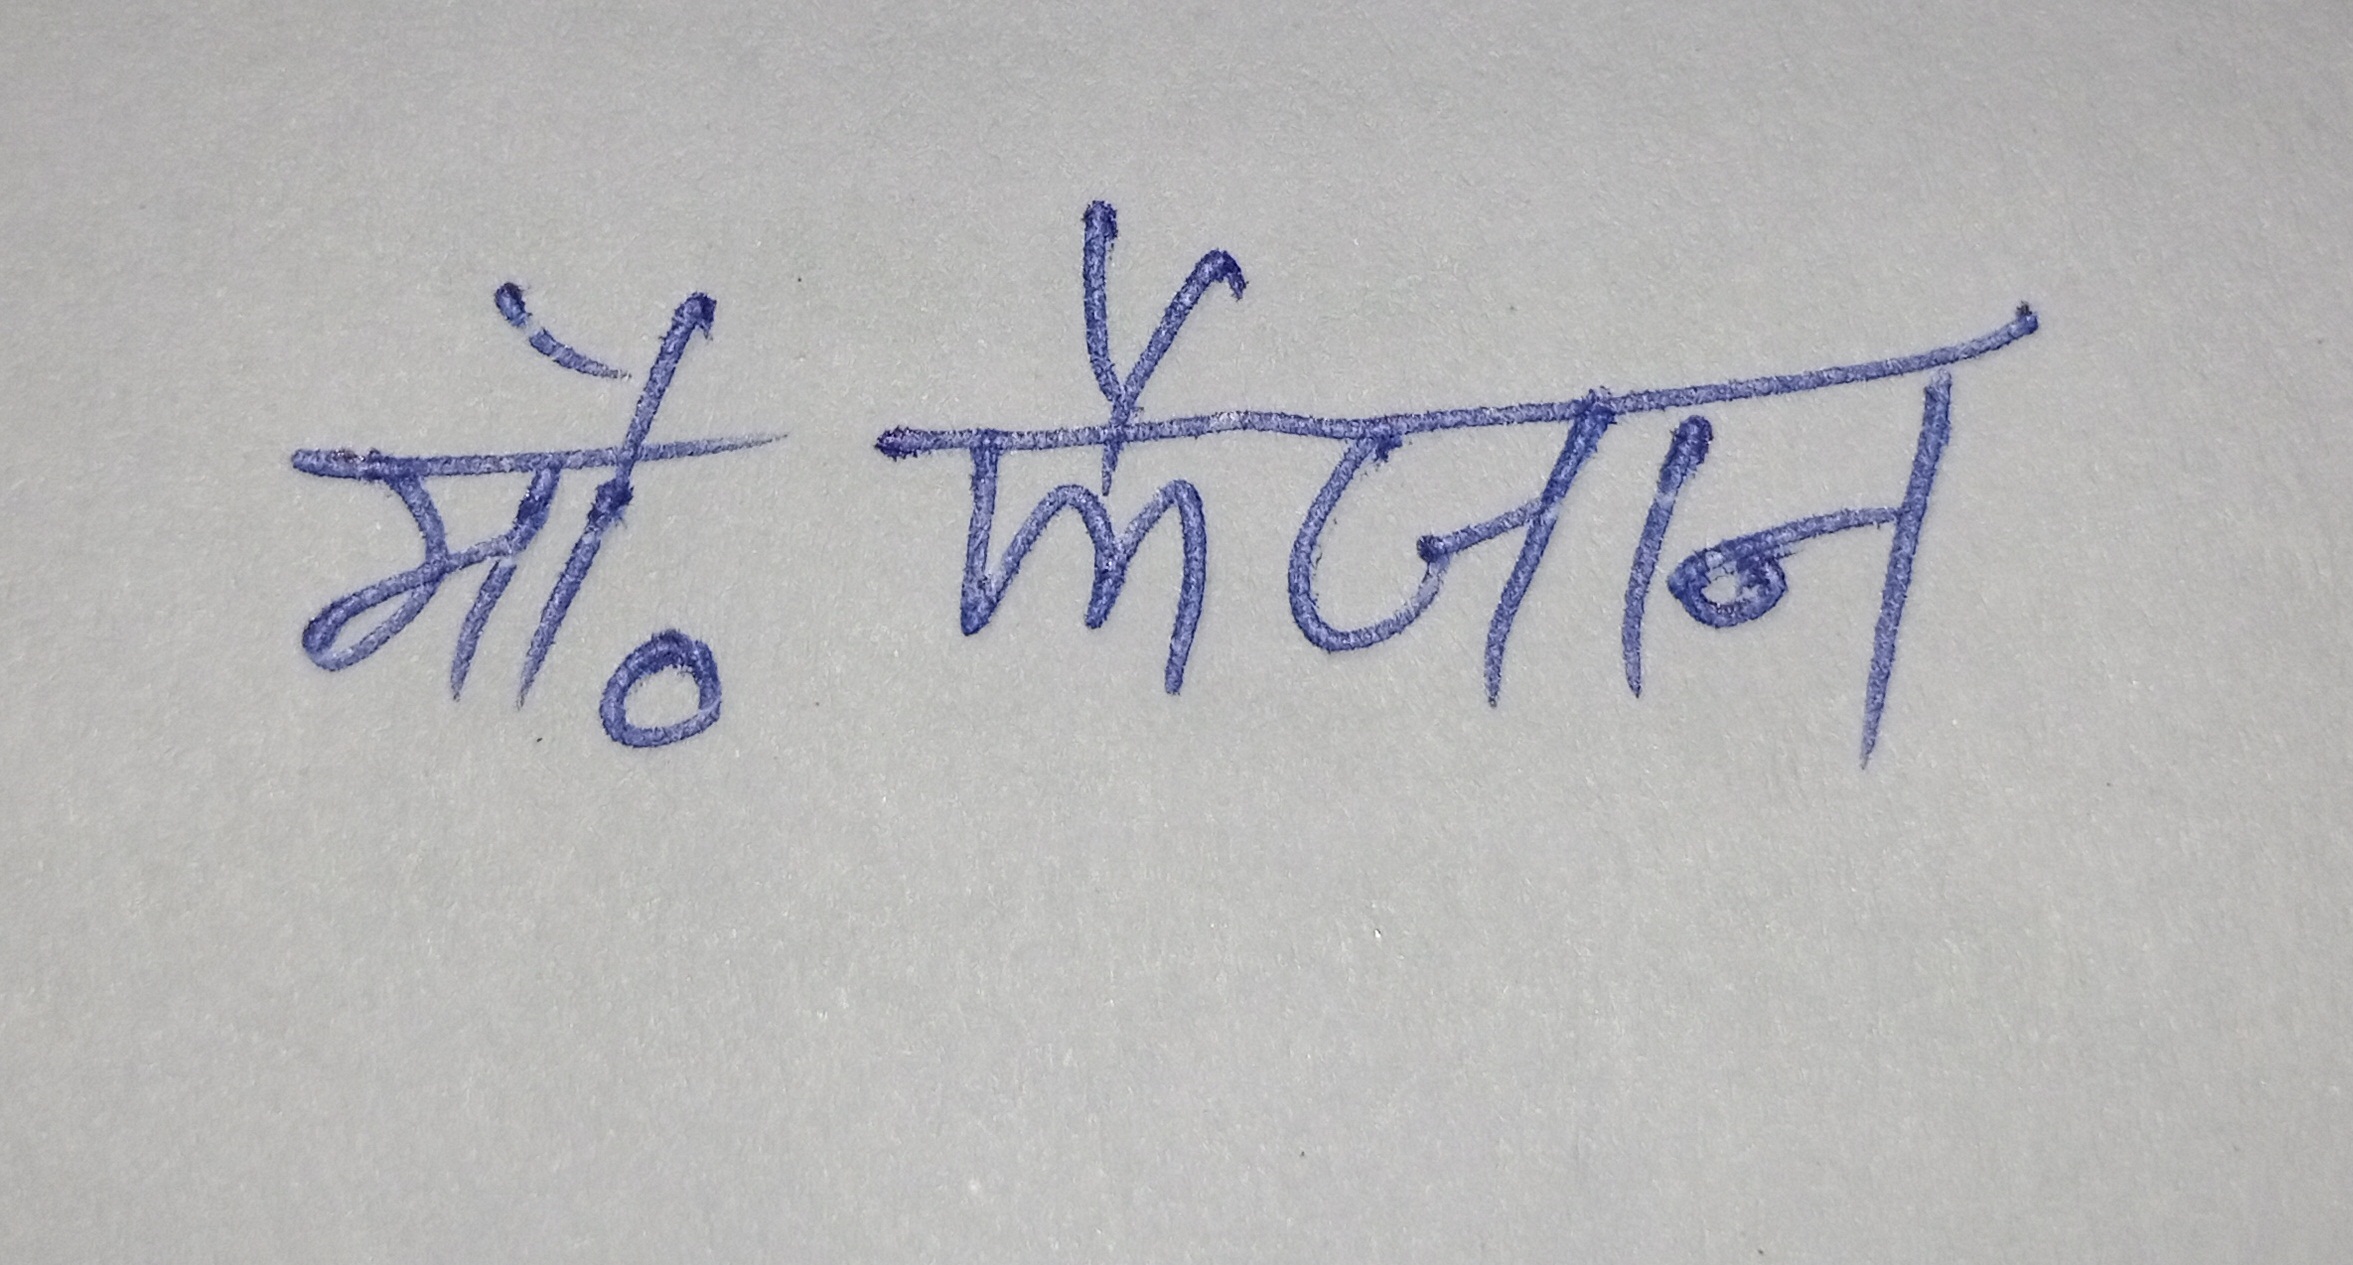 मो० फैजान